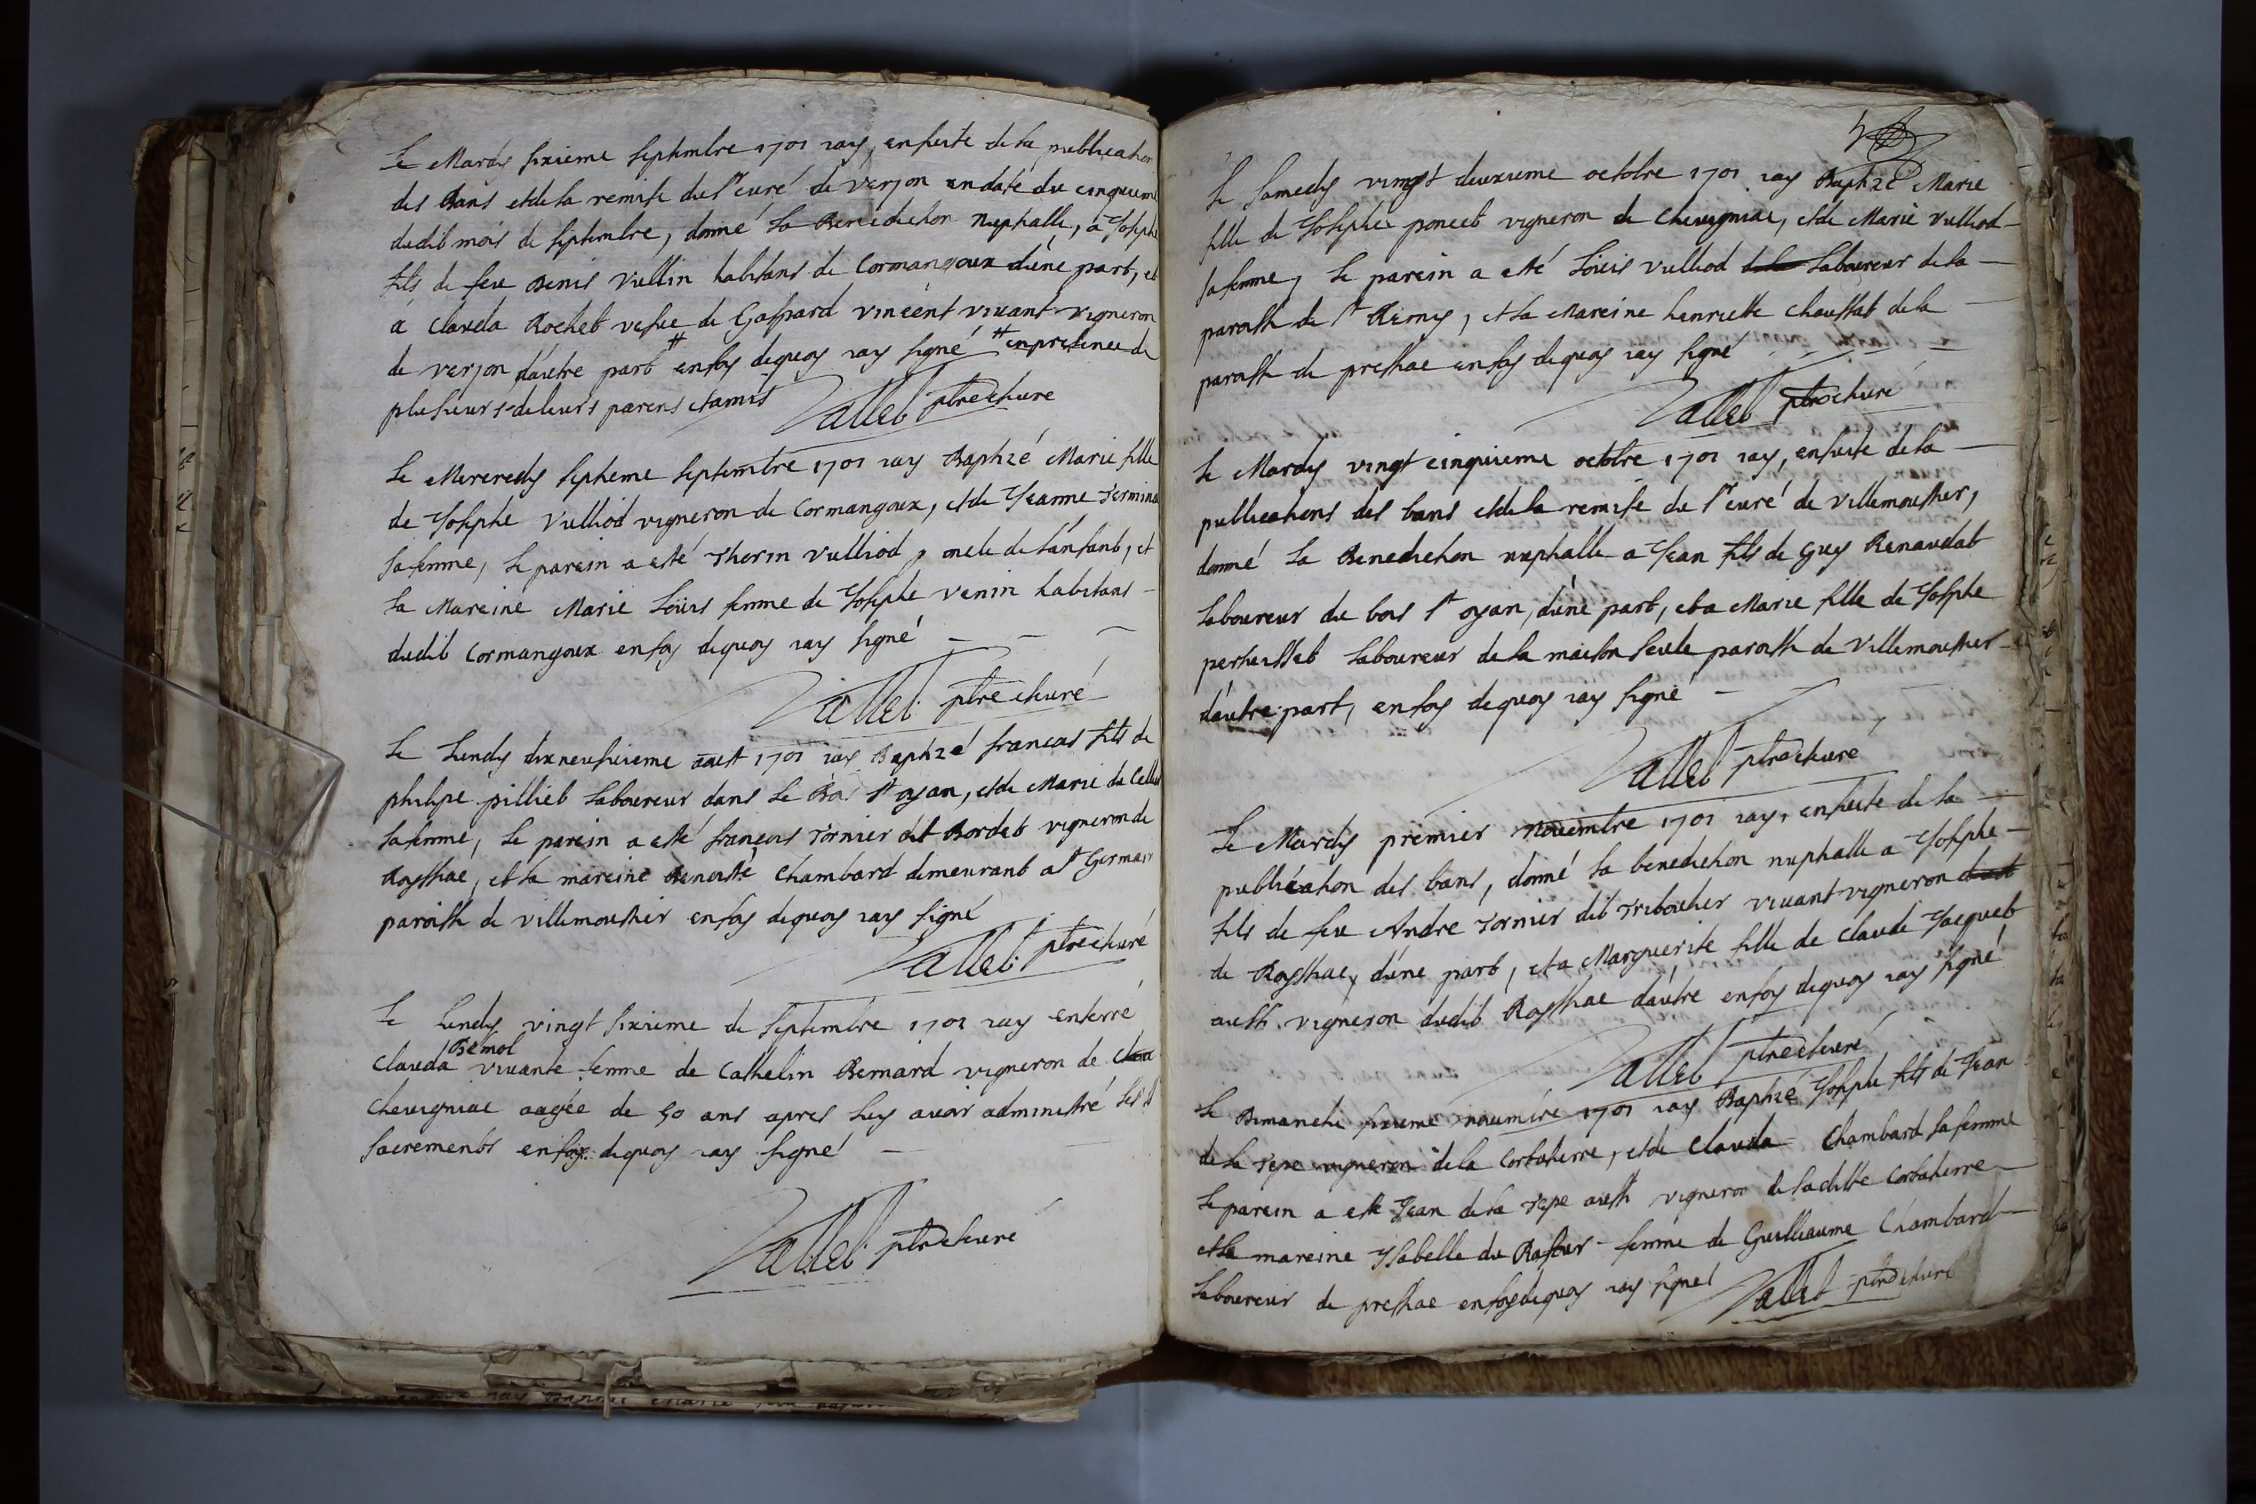 Le Mardy sixieme septembre 1701 iay, ensuite de la publication
des Bans et de la remise du sr curé de verjon en date du cinquieme
dudit mois de septembre, donné la Benediction nuptialle, a Joseph
fils de feu Denis Vullin habitans de Cormangoux d'une part, et
a Clauda Rochet vefve de Gaspard vincent vivant vigneron
de verjon d'autre part # en foy dequoy iay signé # en presence de
plusieurs de leurs parens et amis Vallet ptre et curé
Le Mercredy septieme septembre 1701 iay Baptizé Marie fille
de Josephe Vulliod vigneron de Cormangoux, et de Jeanne
sa femme, le parein a esté Thorin Vulliod, oncle de l'anfant, et
la Mareine Marie Loüis femme de Josephe Venin habitans
dudit Cormangoux en foy dequoy iay signé
Vallet ptre et curé
Le Lundy dixneufvieme aoust 1701 iay Baptizé francois fils de
philipe pilliet laboureur dans le Bois st oyan, et de Marie
sa femme, le parein a esté francois Tornier dit Bordet vigneron de
Roysshae, et la mareine Benoiste Chambard demeurant a st Germain
paroisse de villemoutier en foy dequoy iay signé
Vallet ptre et curé
Le Lundy vingt sixieme de septembre 1701 iay enterré
Bemol
Clauda vivante femme de Cathelin Bernard vigneron de
Chevigniac aagée de 50 ans apres luy avoir administré les sts
sacrements en foy dequoy iay signé
Vallet ptre et curé
Le Samedy vingt deuxieme octobre 1701 iay Baptizé Marie
fille de Josephe poncet vigneron de Chevigniac, et de Marie Vulliod
sa femme, le parein a esté Loüis Vulliod laboureur de la
paroisse de st Remy, et la Mareine henriette Chaussat de la
paroisse de pressiac en foy dequoy iay signé
Vallet ptre et curé
Le Mardy vingt cinquieme octobre 1701 iay, ensuite de la
publications des bans et de la remise du sr curé de Villemoustier,
donné la Benediction nuptialle a Jean fils de Guy Renaudat
laboureur du bois st oyan, d'une part, et a Marie fille de Josephe
pertuisset laboureur de la maison seule paroisse de Villemoustier
d'autre part, en foy dequoy iay signé
Vallet ptre et curé
Le Mardy premier novembre 1701 iay, ensuite de la
publication des bans, donné la benediction nuptialle a Josephe
fils de feu Andre Tornier dit Triboulier vivant vigneron
de Roysshae, d'une part, et a Marguerite fille de Claude Jacquet
aussi vigneron dudit Roysshae d'autre en foy dequoy iay signé
Vallet ptre et curé
Le Dimanche sixieme novembre 1701 iay Baptizé Josephe fils de Jean
de la Tepe vigneron de la Corbatiere, et de Clauda Chambard sa femme
le parein a esté Jean de la Tepe aussi vigneron de la ditte Corbatiere
et la mareine Isabelle du Rafour femme de Guilliaume Chambard
laboureur de pressiac en foy dequoy iay signé Vallet ptre et curé